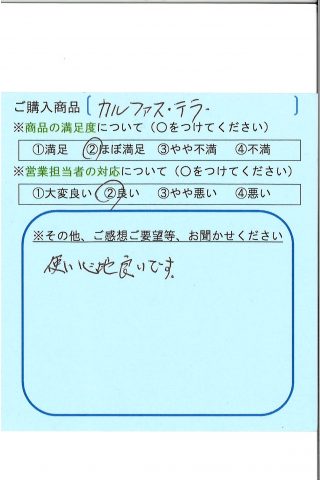 ご購入商品 [カルファス・テラー]
※商品の満足度について（○をつけてください）
①満足 ②ほぼ満足 ③やや不満 ④不満
※営業担当者の対応について（○をつけてください）
①大変良い ②良い ③やや悪い ④悪い
※その他、ご感想ご要望等、お聞かせください
使い心地良いです。